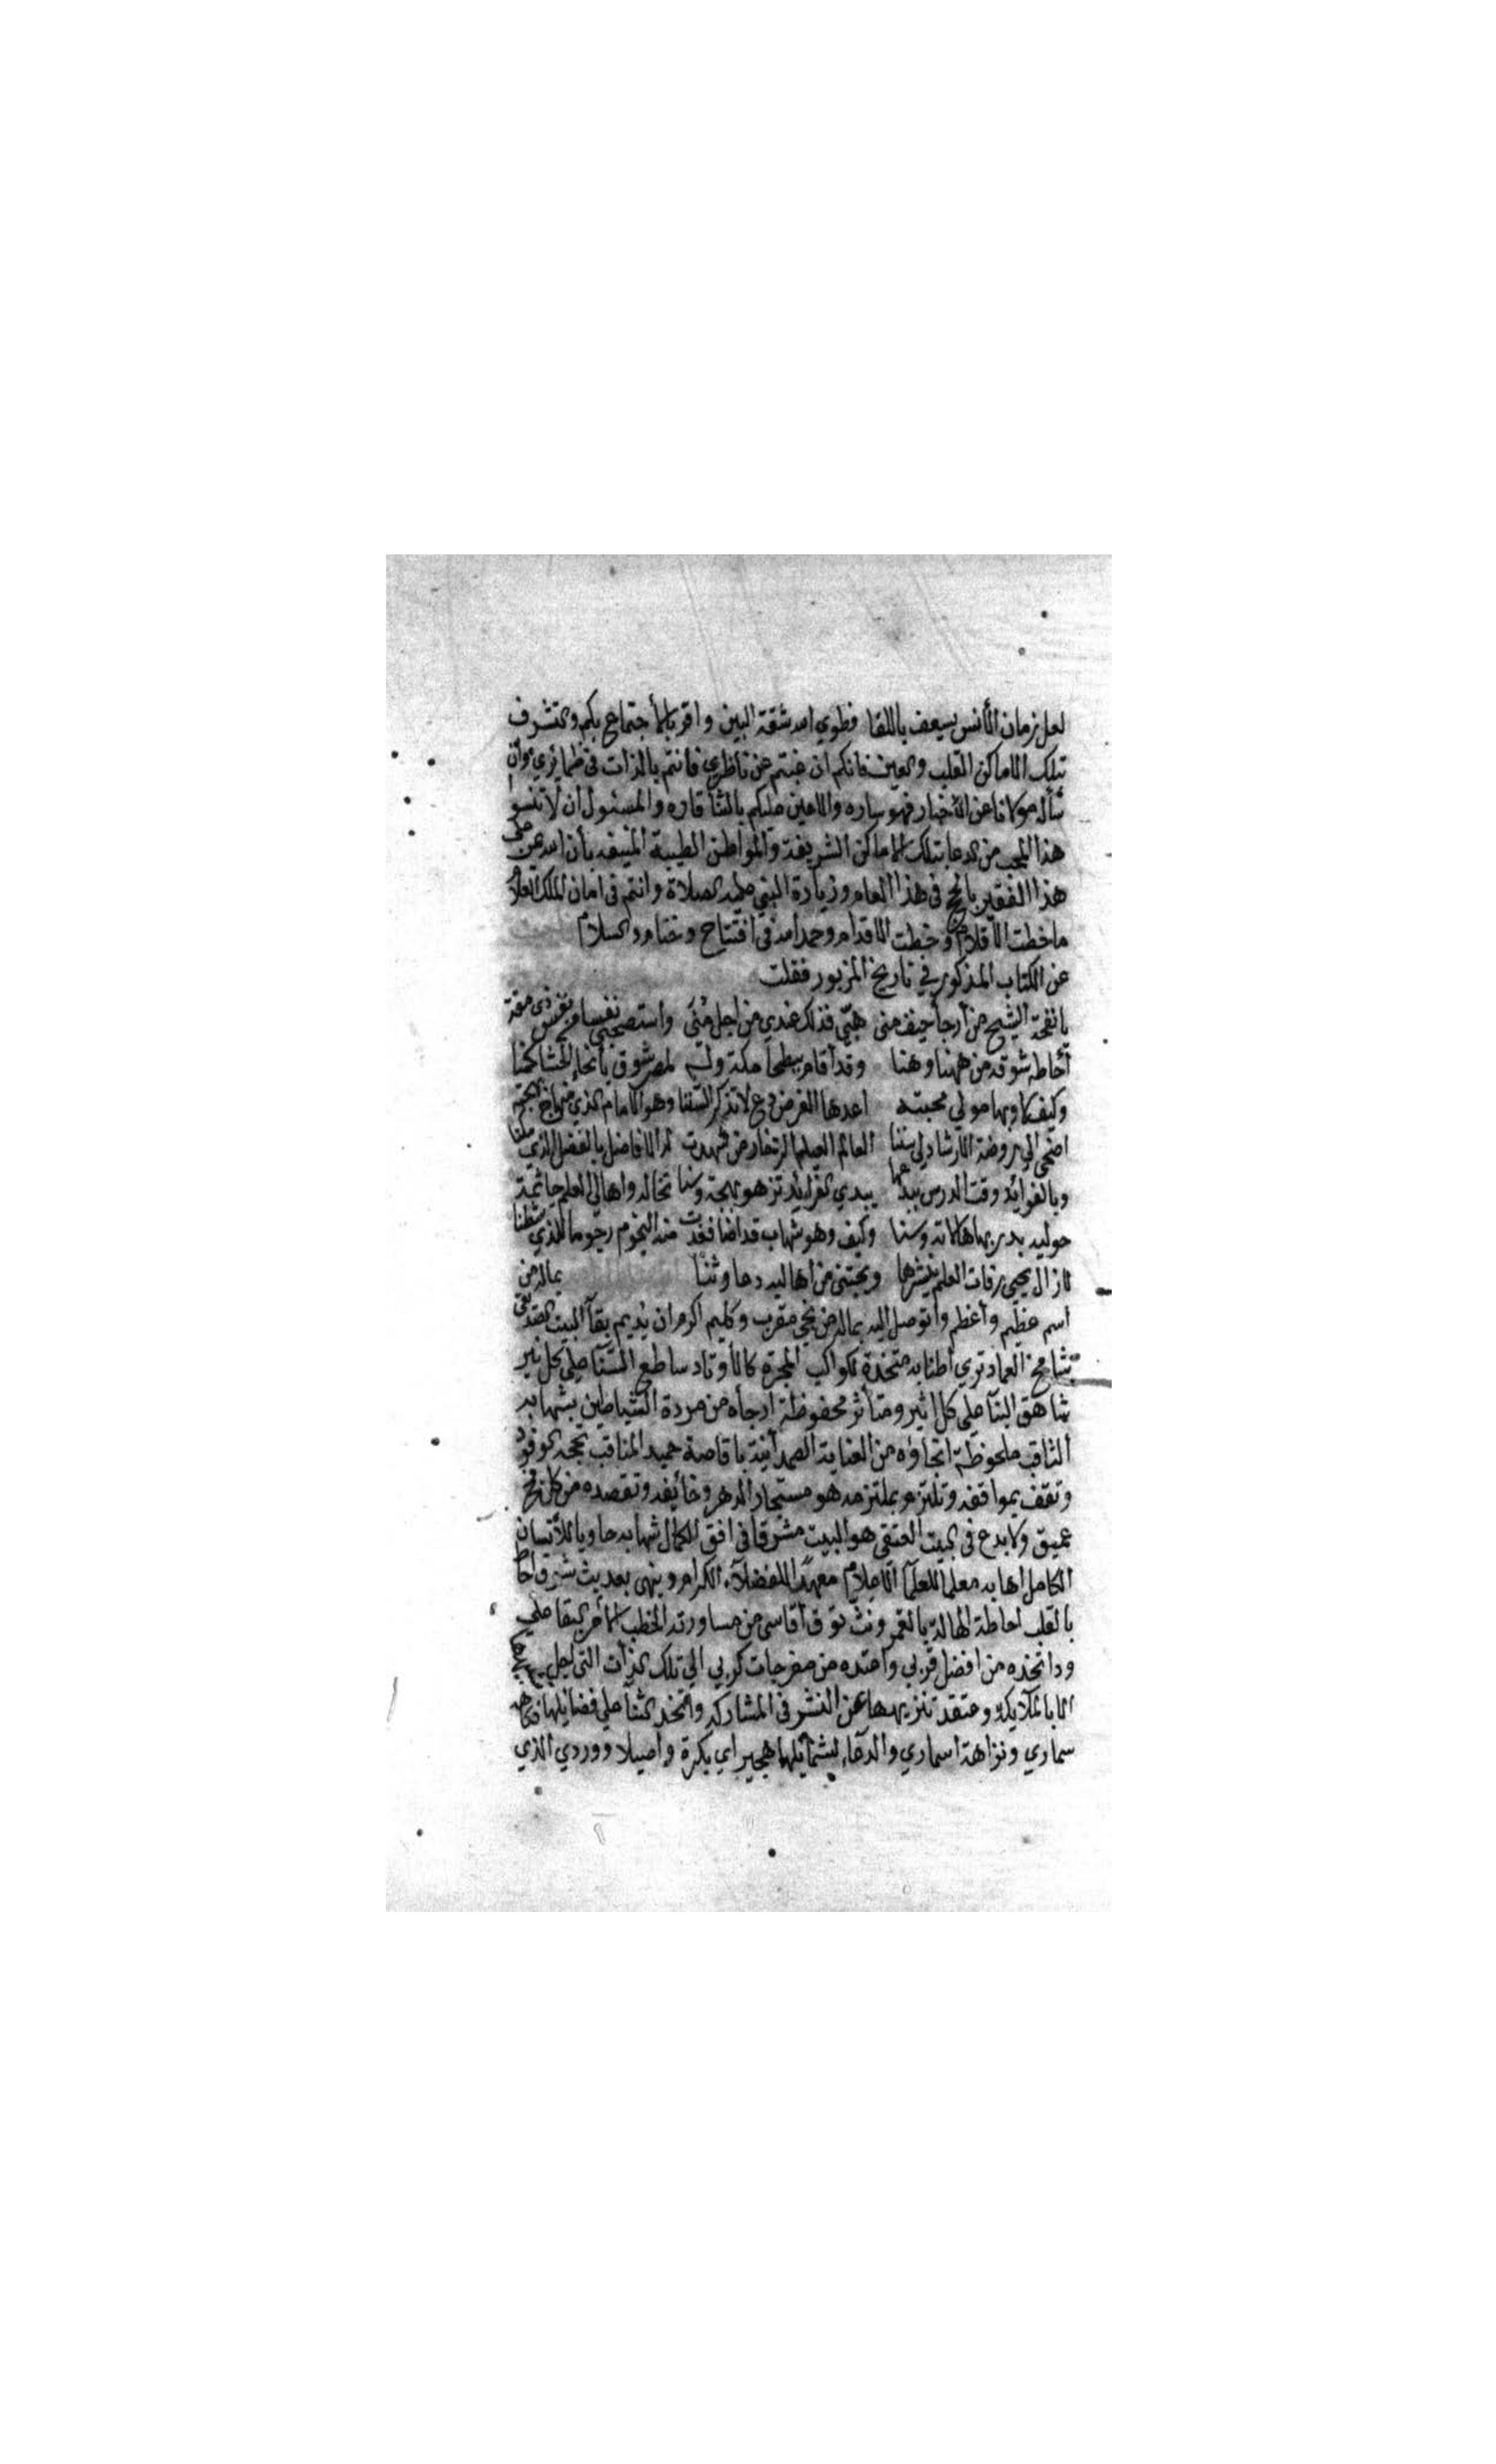 لعل زمان الأنس يسعف باللقا فطوي الله شقة البين واقر بالأجتماع بكم والتشرف
بتلك الاماكن القلب والعين فانكم ان غبتم عن ناظري فانتم بالذات في ضمائري وان
سأل مولانا عن الأخبار فهو ساره والاعين عليكم بالثنا قاره والمسئول أن لا تنسوا
هذا المحب من الدعا بتلك الاماكن الشريفة والمواطن الطيبة المنيفه بأن الله يمن على
هذا الفقير بالحج في هذا العام وزيارة النبي عليه الصلاة وانتم في امان الملك العلام
ما خطت الأقلام وخطت الاقدام وحمد الله في افتتاح وختام والسلام
عن الكتاب المذكور في تاريخ المزبور فقلت
يا نفحة الشيح من أرجا خيف منى هبّي فذلك عندي من اجل مُنَى واستصحبي نفسا من نفس ذي مقة
أحاطه شوقه من ههنا وهنا وقد أقام ببطحا مكة وله لمصر شوق بأنحا الحشا كمنا
وكيف لا وبها مولي محبته اعدها الفرض دع لا تذكر السننا وهو الامام الذي منهاج
اضحى الي روضة الارشاد لي سننا العالم العيلم الزخار من شهدت له الافاضل بالفضل الذي
وبالفوايد وقت الدرس يبدعها يبدي الفرايد تزهو بهجة وسنا تخاله واهالي العلم جاثمة
حوليه بدر بها هالاته وسنا وكيف وهو شهاب قد اضا فغدت منه النجوم رجوما للذي شطنا
لا زال يحيي رفات العلم ينشرها ويجتني من اهاليه دعا وثنا بماله من
اسم عظيم وأعظم وأتوصل اليه بماله من نجي مقرب وكليم اكرم ان يديم بقا البيت الصديقي
شامخ العماد تري اطنابه متخذة لكواكب المجرة كالأوتاد ساطع السنا علي كل نير
شاهق البنا علي كل اثير ومتأثر محفوظة ارجاه من مردة الشياطين بشهابه
الثاقب ملحوظة انحاؤه من العناية الصمدانية باقامة حميد المناقب تحجه الوفود
وتقف بمواقفه وتلتزم بملتزمه هو مستجار الدهر وخائفه وتقصده من كل فج
عميق ولا بدع في البيت العتيق هو البيت مشرقا في افق الكمال شهابه حاويا للأنسان
الكامل اهابه معلما للعلما الاعلام معهدا للفضلآء الكرام وينهى بعد بث شوق احاط
بالقلب احاطة الهالة بالقمر ونث توق أقاسي من مساورته الخطب الأمر البقا علي
ود اتخذه من افضل قربي واعتده من مفرجات كربي الي تلك الذات التي اجل
الا بالملايكة وعتقد تنزيهها عن النشر في المشاركه واتخذ الثنا علي فضايلها
سماري ونزاهة اسماري والدعاء لشمائلها هجيراي بكرة واصيلا ووردي الذي